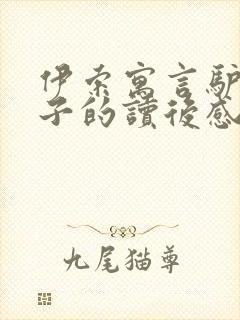 伊索寓言驴
子的讀後感
九尾猫尊